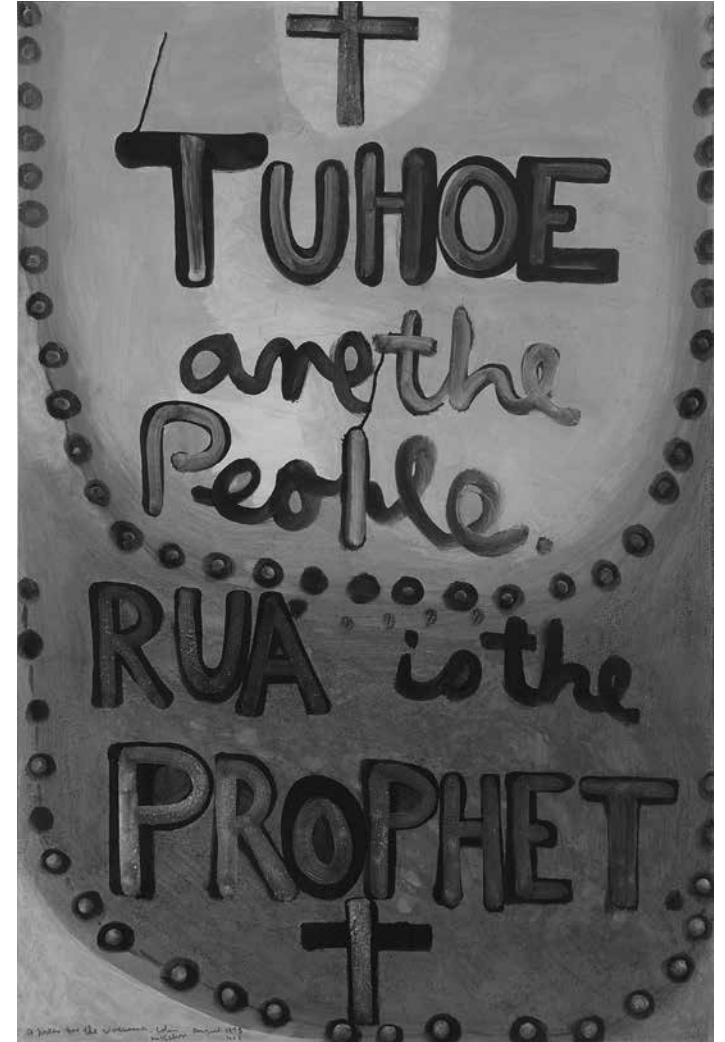 TUHOE
are the
People.
RUA is the
PROPHET
A poster for the Urewera. Colin August 1975
McCahon No 2